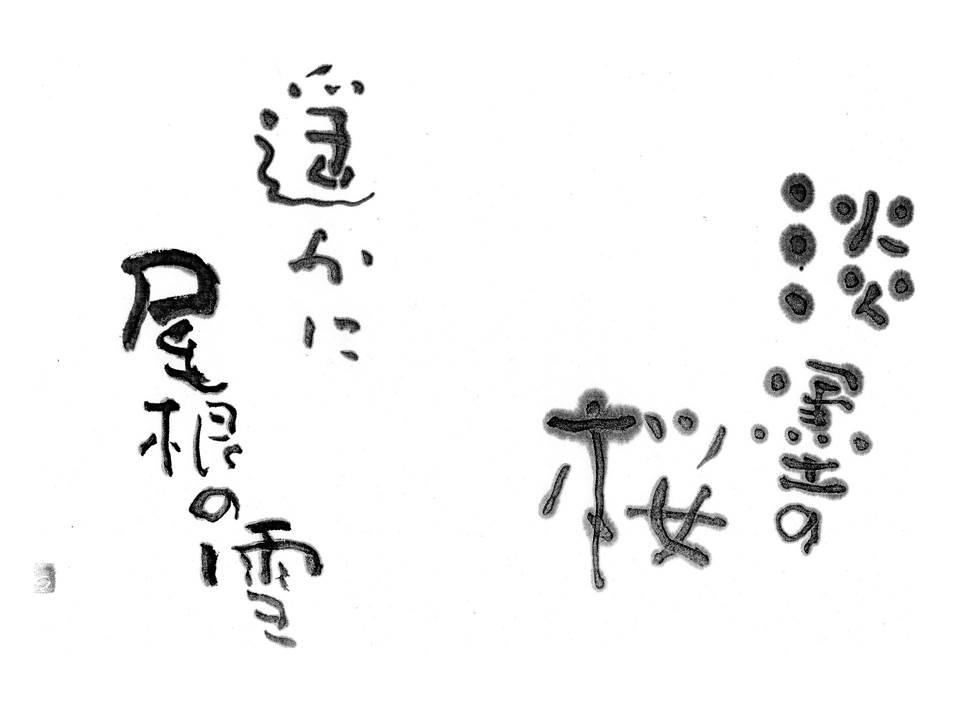 淡墨の
桜
遥かに
屋根の雪